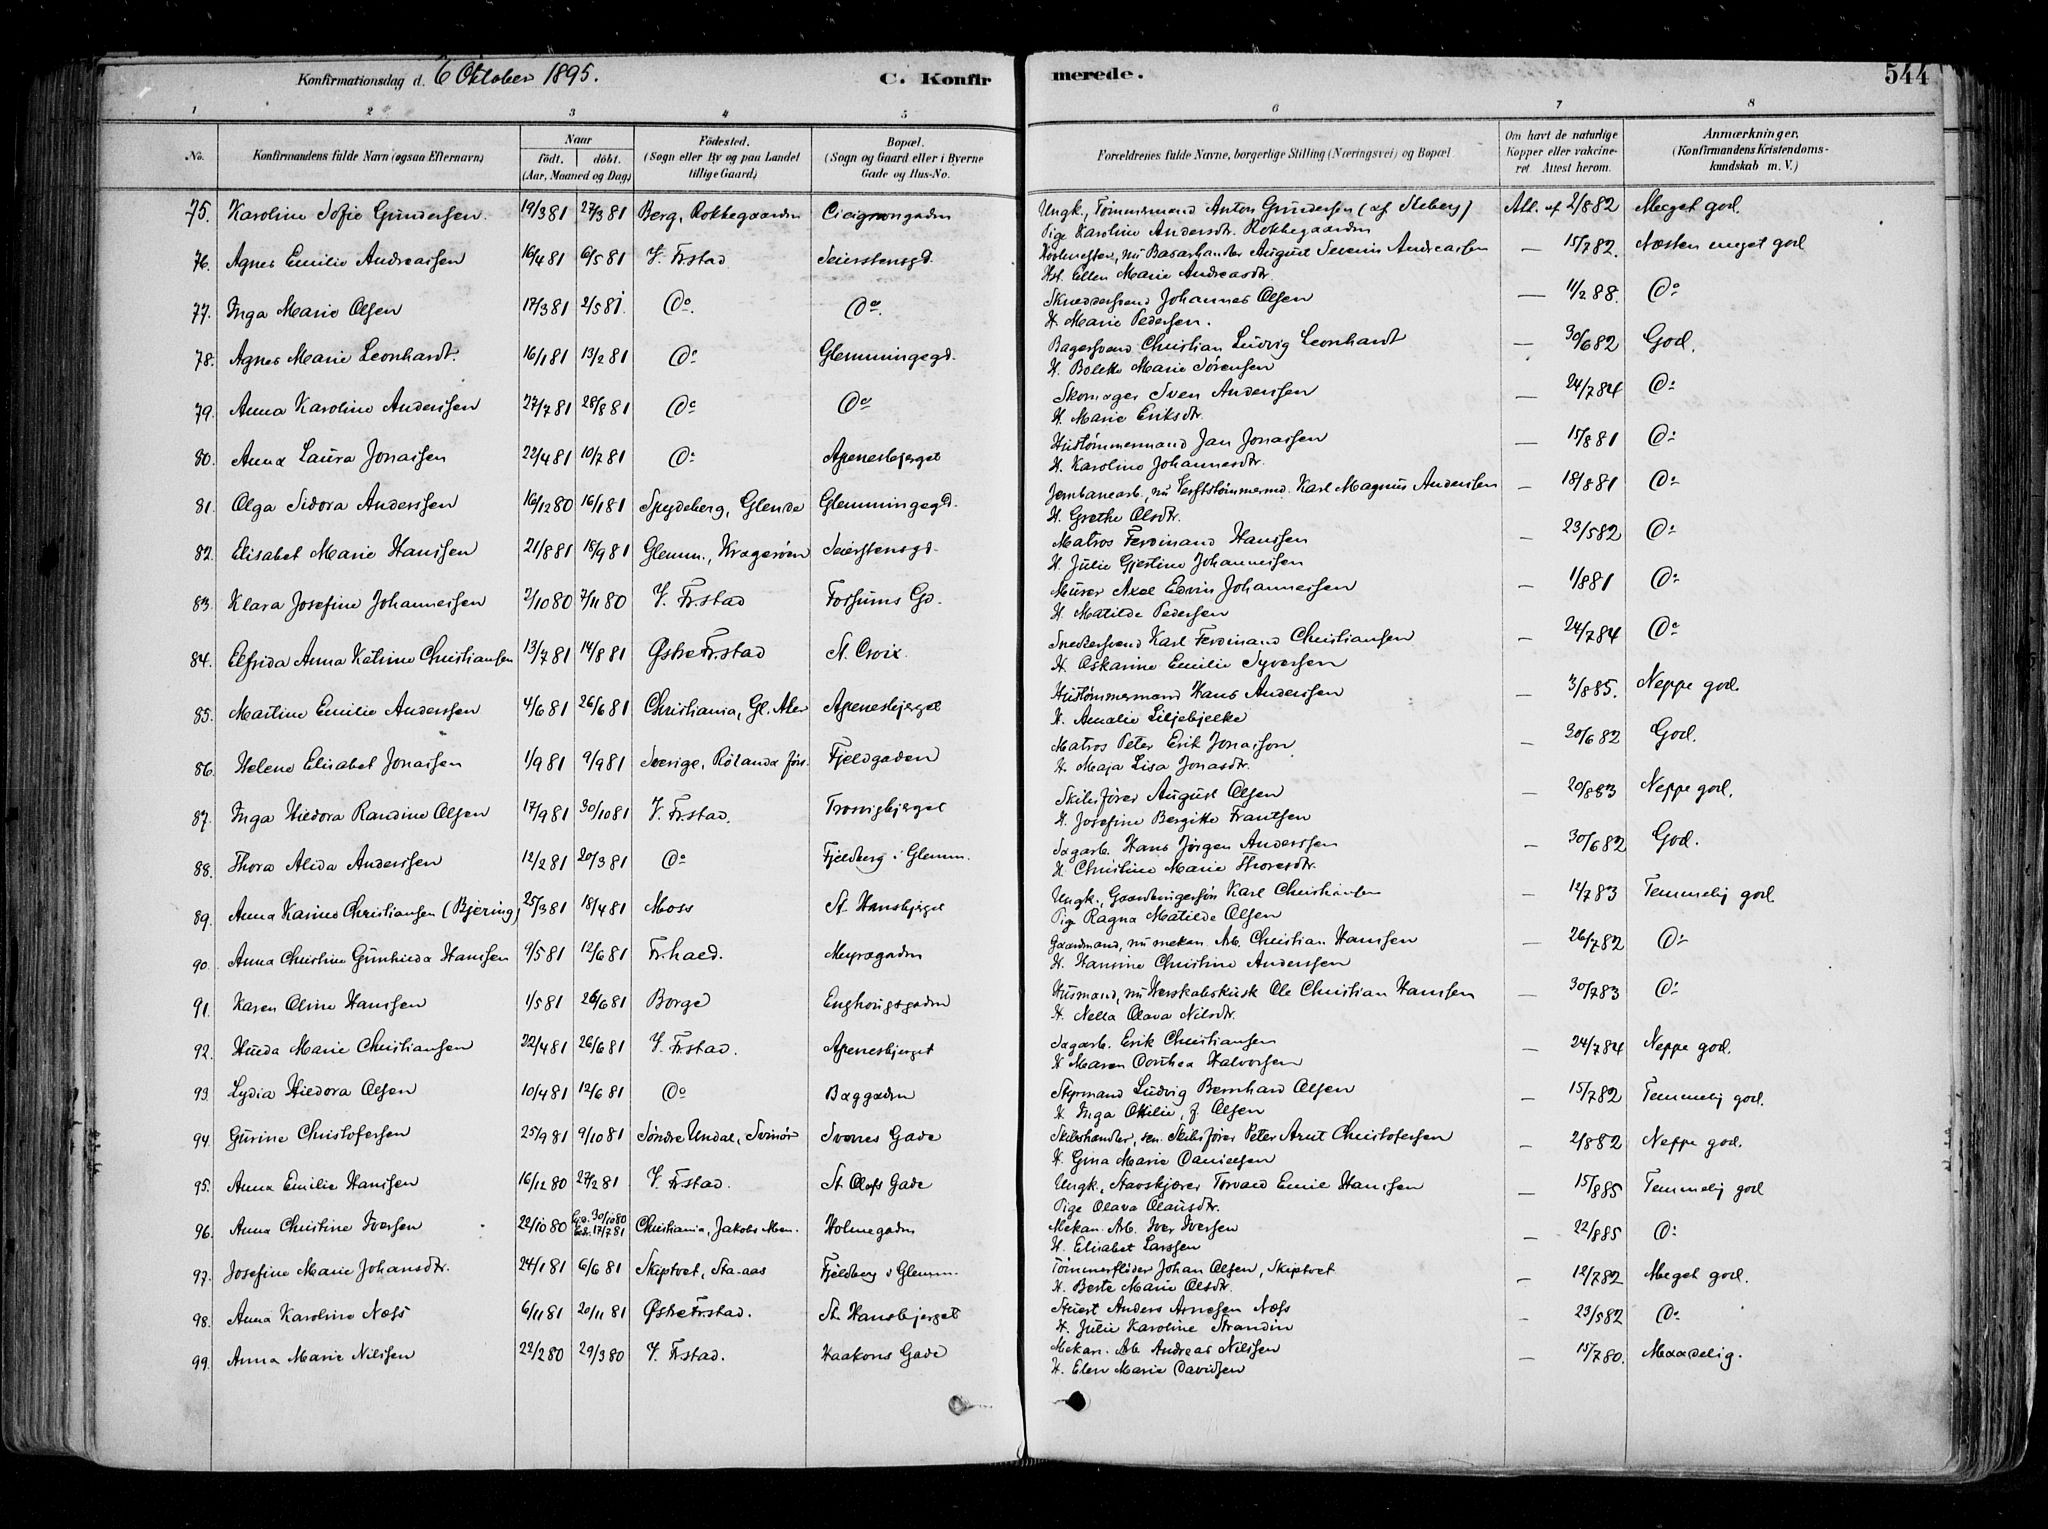 Konfirmationsdag d. 6 Oktober 1895. C. Konfirmerede. 544
1 2 3 4 5 6 7 8
No. Konfirmandens fulde Navn (ogsaa Efternavn) Naar födt. döbt. (Aar, Maaned og Dag) Födested. (Sogn eller By og paa Landet tillige Gaard) Bopæl. (Sogn og Gaard eller i Byerne Gade og Hus-No. Forældrenes fulde Navne, borgerlige Stilling (Næringsvei) og Bopæl Om havt de naturlige Kopper eller vakcineret Attest herom. Anmærkninger. (Konfirmandens Kristendomskundskab m. V.)
75. Karoline Sofie Gundersen. 19/3 81 27/3 81 Berg, Rokkegaarden Cicignonsgaden Ungk., Tømmermand Anton Gundersen Att. af 2/8 82 Meget god.
Pige Karoline Andersdr. Rokkegaarden
76. Agnes Emilie Andreassen 16/4 81 6/5 81 V. Fr.stad Seierstensgd. nu Basarhandler August Severin Andreassen — 15/7 82. Næsten meget god
Hst. Ellen Marie Andreasdtr.
77. Inga Marie Olsen 17/3 81 2/5 81. Do. Do. Skræddersvend Johannes Olsen — 11/2 88. Do
H. Marie Pedersen.
78. Agnes Marie Leonhardt. 16/1 81 13/2 81 Do Glemmingegd. Bagersvend Christian Ludvig Leonhardt — 30/6 82 God.
H. Bolette Marie Sørensen
79. Anna Karoline Anderssen 27/7 81 28/8 81 Do Do Skomager Sven Anderssen — 24/7 84 Do
H. Marie Eriksdtr.
80. Anna Laura Jonassen 22/4 81 10/7 81 Do Apenesbjerget Hustømmermand Jan Jonassen — 15/8 81 Do
H. Karoline Johannesdtr.
81. Olga Sidora Anderssen 16/12 80 16/1 81 Spydeberg, Glende Glemmingegd. Jernbanearb., nu Verftstømmermd. Karl Magnus Anderssen — 18/8 81 Do
H. Grethe Olsdtr.
82. Elisabet Marie Hanssen 21/8 81 18/9 81 Glemm., Kragerøen Seierstensgd. Matros Ferdinand Hanssen — 23/5 82 Do
H. Julie Gjestine Johannessen
83. Klara Josefine Johannessen 2/10 80 7/11 80 V. Fr.stad Forsums Gd. Murer Axel Edvin Johannessen — 1/8 81 Do
H. Matilde Pedersen
84. Elfrida Anna Katrine Christiansen 13/7 81 14/8 81 Østre Fr.stad St. Croix. Snedkersvend Karl Ferdinand Christiansen — 24/7 84 Do
H. Oskarine Emilie Syversen
85. Martine Emilie Anderssen 4/6 81 26/6 81 Christiania, Gl. Aker Apenesbjerget Hustømmermand Hans Anderssen — 3/8 85. Neppe god.
H. Amalie Liljebjelke
86. Helene Elisabet Jonassen 1/9 81 9/9 81 Sverige, Rölanda Fjeldgaden Matros Peter Erik Jonasson — 30/6 82 God.
H. Maja Lisa Jonasdtr.
87. Inga Hiedora Randine Olsen 17/9 81 30/10 81 V. Fr.stad. Trosvigbjerget Skibsfører August Olsen — 20/8 83 Neppe god.
H. Josefine Bergitte Frantsen
88. Thora Alida Anderssen 12/2 81 20/3 81 Do Fjeldberg i Glemm. Sagarb. Hans Jörgen Anderssen — 30/6 82 God.
H. Christine Marie Thoresdtr.
89. Anna Karine Christiansen (Bjering) 25/3 81 18/4 81 Moss St. Hansbjerget Ungk., Gaardbrugersøn Karl Christiansen — 12/7 83 Temmelig god
Pige Ragna Matilde Olsen
90. Anna Christine Gunhilda Hanssen 9/5 81 12/6 81 Fr.hald. Myragaden Gaardmand, nu mekan. Arb. Christian Hanssen — 26/7 82 Do
H. Hansine Christine Anderssen
91. Karen Oline Hanssen 1/5 81 26/6 81 Borge Enghougsgaden Husmand, nu Herskabskusk Ole Christian Hanssen — 30/7 83 Do
H. Nella Olava Nilsdtr.
92. Hulda Marie Christiansen 22/4 81 26/6 81 V. Fr.stad. Apenesbjerget Sagarb. Erik Christiansen — 24/7 84 Neppe god.
H. Maren Dorthea Halvorsen
93. Lydia Hiedora Olsen 10/4 81 12/6 81 Do Baggaden Styrmand Ludvig Bernhard Olsen — 15/7 82 Temmelig god.
H. Inga Otilie, f. Olsen
94 Gurine Christofersen 25/9 81 9/10 81 Søndre Undal, Svinør Svenes Gade Skibshandler, sen. Skibsfører Peter Arnt Christofersen — 2/8 82 Neppe god.
H. Gina Marie Danielsen
95. Anna Emilie Hanssen 16/12 80 27/2 81 V. Fr.stad. St. Olafs Gade Ungk., Torvald Emil Hanssen — 15/8 85 Temmelig god
Pige Olava Olausdtr.
96. Anna Christine Iversen 22/10 80 30/10 80 17/7 81 Christiania, Jakobs Men. Holmegaden Mekan. Arb. Iver Iversen — 22/8 85 Do
H. Elisabet Larssen
97. Josefine Marie Johansdtr. 24/1 81 6/6 81 Skiptvet, Sta-aas Fjeldberg i Glemm. Tømmerfløder Johan Olsen, Skiptvet — 12/7 82 Meget god.
H. Berte Marie Olsdtr.
98. Anna Karoline Næss 6/11 81 20/11 81 Østre Fr.stad. St. Hansbjerget Stuert Anders Arnesen Næss - 23/5 82 Do
H. Julie Karoline Strandin
99. Anna Marie Nilssen 22/2 80 29/3 80 V. Fr.stad. Haakons Gade Mekan. Arb Andreas Nilssen — 15/7 80. Maadelig.
H. Elen Marie Davidsen